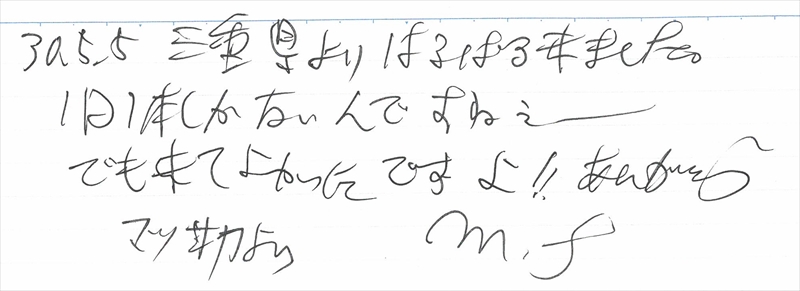 30.5.5 三重県よりはるばる来ました。
1日1本しかないんですねえー
でも来てよかったですよ!!ありがとう
より M.f